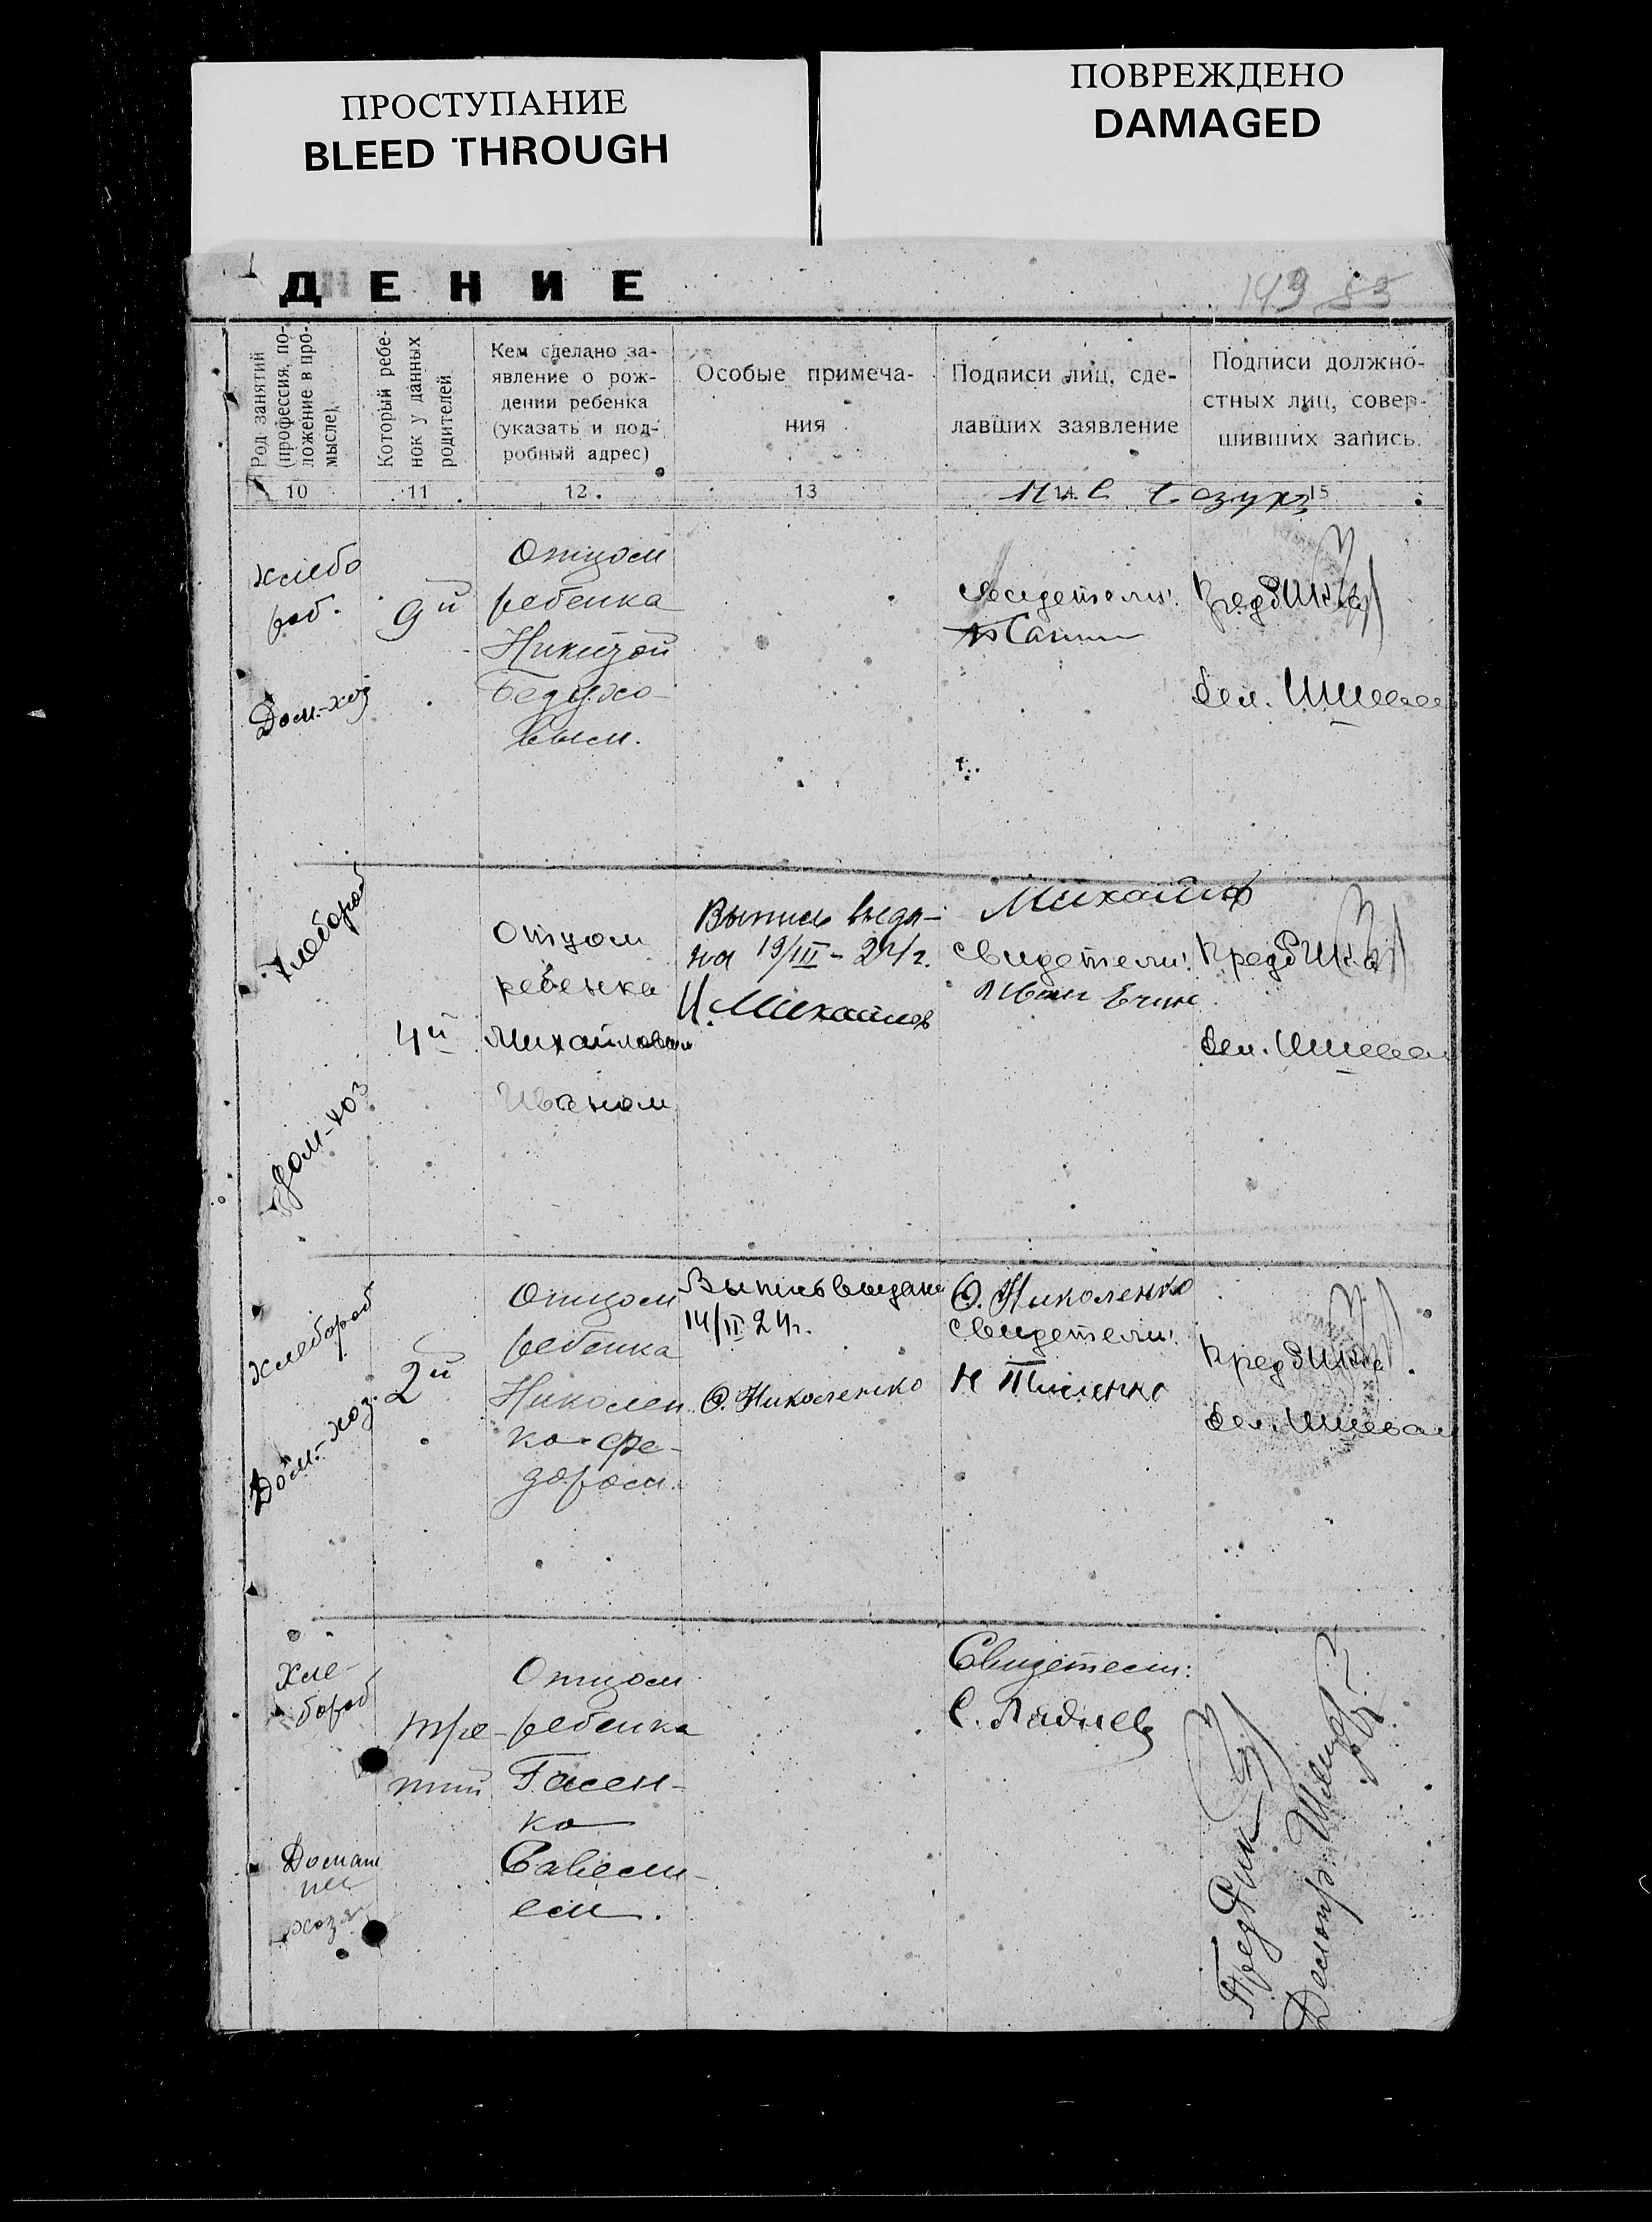 ПРОСТУПАНИЕ
BLEED THROUGH
ПОВРЕЖДЕНО
DAMAGED
ДЕНИЕ
149 83
Род занятий
(профессия, по-
ложение в про-
мысле)
Который ребе-
нок у данных
родителей
Кем сделано за-
явление о рож-
дении ребенка
(указать и под-
робный адрес)
Особые примеча-
ния
Подписи лиц, сде-
лавших заявление
Подписи должно-
стных лиц, совер-
шивших запись.
10
11
12
13
14
15
хлебо
роб.
Дом-хоз
9й
Отцом
ребенка
Никитой
Свидетели:
Дел.
Хлебороб
дом-хоз
4й
Отцом
ребенка
Михайловым
Иваном
Выпись выда-
на 19/III-24г.
И. Михайлов
Михайлов
свидетели:
Иван
Дел.
Хлебороб
Дом-хоз.
2й
Отцом
ребенка
Николен
ко Фе-
дором.
Выпись выдана
14/II 24г.
Ѳ. Николенко
Ѳ. Николенко
свидетели:
Дел.
Хле-
бороб
Домаш
няя
хозя
тре-
тий
Отцом
ребенка
Гасен-
ко
Савели-
ем.
Свидетели:
С. Ладнев